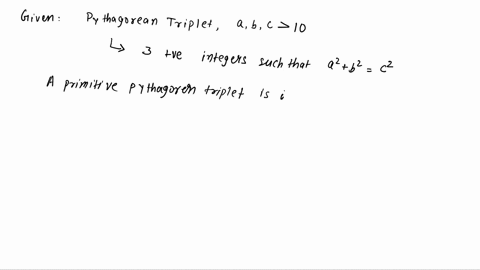 Given: Pythagorean Triplet, a, b, c > 10
↳ 3 +ve integers such that a² + b² = c²
A primitive pythagoren triplet is i